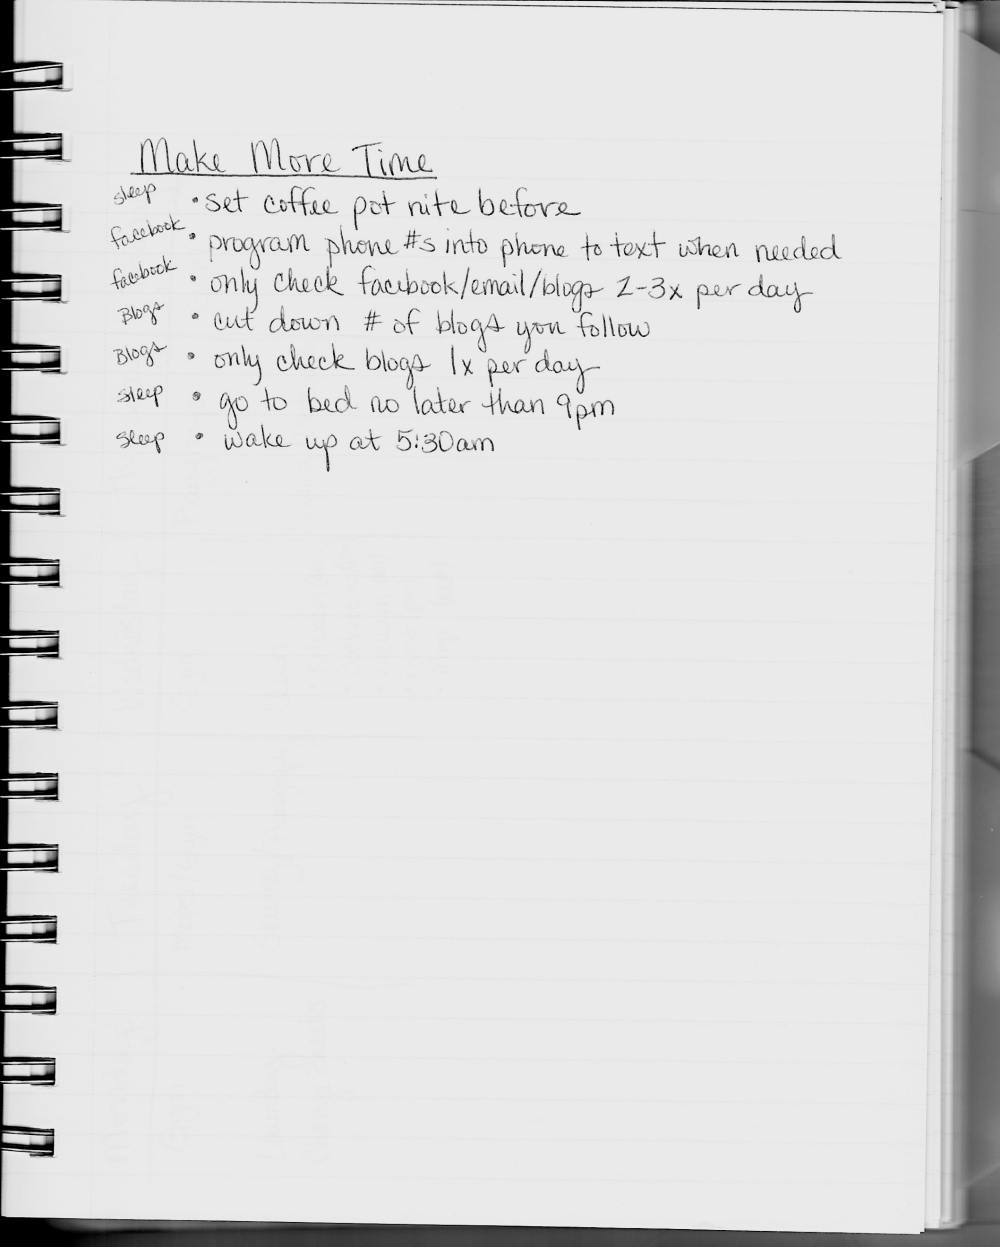 Make More Time
sleep • set coffee pot nite before
facebook • program phone #s into phone to text when needed
facebook • only check facebook/email/blogs 2-3x per day
Blogs • cut down # of blogs you follow
Blogs • only check blogs 1x per day
sleep • go to bed no later than 9pm
sleep • wake up at 5:30am